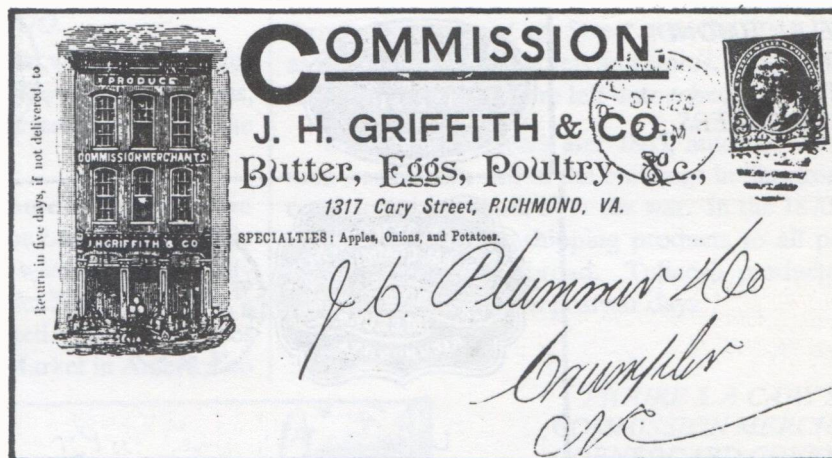 Return in five days, if not delivered, to
PRODUCE
COMMISSION MERCHANTS
J.H.GRIFFITH & CO
COMMISSION.
J. H. GRIFFITH & CO.,
Butter, Eggs, Poultry, &c.,
1317 Cary Street, RICHMOND, VA.
SPECIALTIES: Apples, Onions, and Potatoes.
DEC 20
J C Plummer & Co
Crumpler
NC